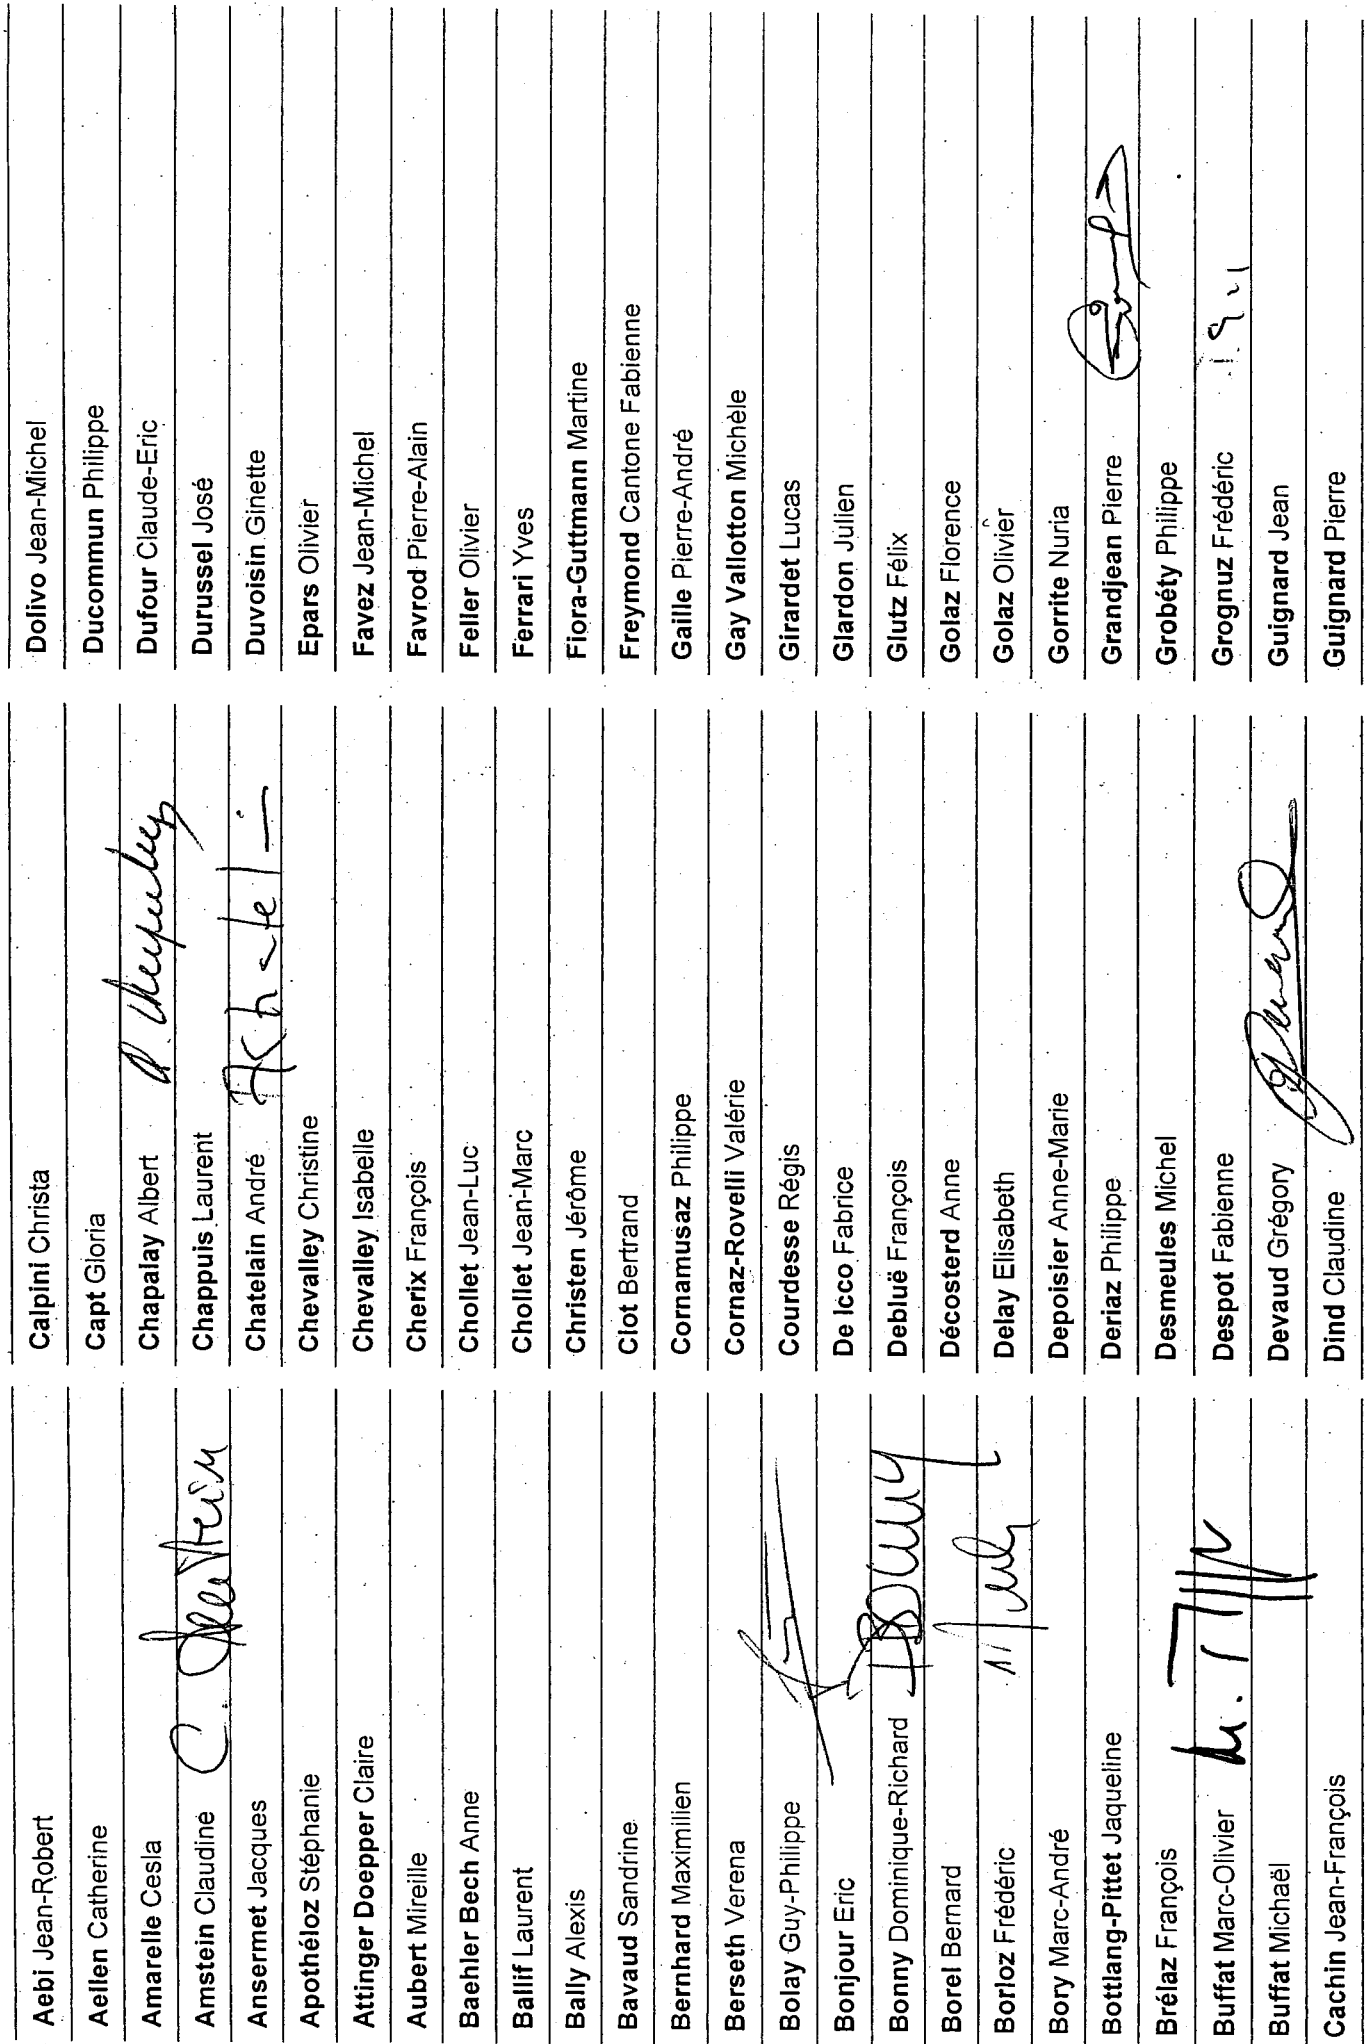 Aebi Jean-Robert
Aellen Catherine
Amarelle Cesla
Amstein Claudine
Ansermet Jacques
Apothéloz Stéphanie
Attinger Doepper Claire
Aubert Mireille
Baehler Bech Anne
Ballif Laurent
Bally Alexis
Bavaud Sandrine
Bernhard Maximilien
Berseth Verena
Bolay Guy-Philippe
Bonjour Eric
Bonny Dominique-Richard
Borel Bernard
Borloz Frédéric
Bory Marc-André
Bottlang-Pittet Jaqueline
Brélaz François
Buffat Marc-Olivier
Buffat Michaël
Cachin Jean-François
Calpini Christa
Capt Gloria
Chapalay Albert
Chappuis Laurent
Chatelain André
Chevalley Christine
Chevalley Isabelle
Cherix François
Chollet Jean-Luc
Chollet Jean-Marc
Christen Jérôme
Clot Bertrand
Cornamusaz Philippe
Cornaz-Rovelli Valérie
Courdesse Régis
De Icco Fabrice
Debluë François
Décosterd Anne
Delay Elisabeth
Depoisier Anne-Marie
Deriaz Philippe
Desmeules Michel
Despot Fabienne
Devaud Grégory
Dind Claudine
Dolivo Jean-Michel
Ducommun Philippe
Dufour Claude-Eric
Durussel José
Duvoisin Ginette
Epars Olivier
Favez Jean-Michel
Favrod Pierre-Alain
Feller Olivier
Ferrari Yves
Fiora-Guttmann Martine
Freymond Cantone Fabienne
Gaille Pierre-André
Gay Vallotton Michèle
Girardet Lucas
Glardon Julien
Glutz Félix
Golaz Florence
Golaz Olivier
Gorrite Nuria
Grandjean Pierre
Grobéty Philippe
Grognuz Frédéric
Guignard Jean
Guignard Pierre